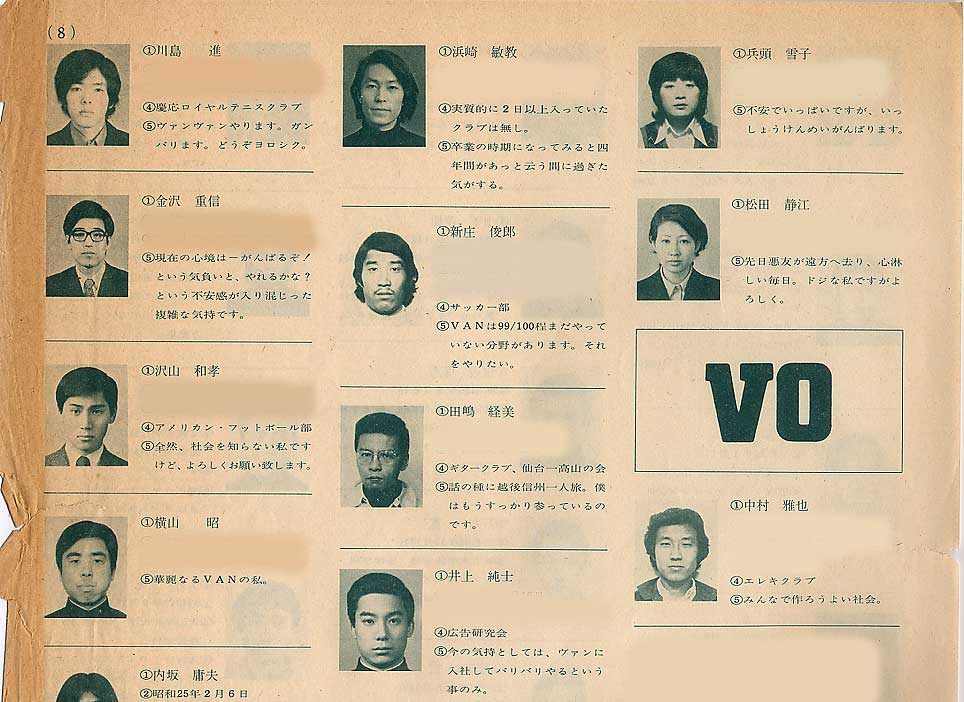 (8)
①川島　進
④慶応ロイヤルテニスクラブ
⑤ヴァンヴァンやります。ガン
バリます。どうぞヨロシク。
①金沢　重信
⑤現在の心境は－がんばるぞ！
という気負いと、やれるかな？
という不安感が入り混じった
複雑な気持です。
①沢山　和孝
④アメリカン・フットボール部
⑤全然、社会を知らない私です
けど、よろしくお願い致します。
①横山　昭
⑤華麗なるＶＡＮの私。
①内坂　庸夫
②昭和25年２月６日
①浜崎　敏教
④実質的に２日以上入っていた
クラブは無し。
⑤卒業の時期になってみると四
年間があっと云う間に過ぎた
気がする。
①新庄　俊郎
④サッカー部
⑤ＶＡＮは99/100程まだやって
いない分野があります。それ
をやりたい。
①田嶋　経美
④ギタークラブ、仙台一高山の会
⑤話の種に越後信州一人旅。僕
はもうすっかり参っているの
です。
①井上　純士
④広告研究会
⑤今の気持としては、ヴァンに
入社してバリバリやるという
事のみ。
①兵頭　雪子
⑤不安でいっぱいですが、いっ
しょうけんめいがんばります。
①松田　静江
⑤先日悪友が遠方へ去り、心淋
しい毎日。ドジな私ですがよ
ろしく。
VO
①中村　雅也
④エレキクラブ
⑤みんなで作ろうよい社会。